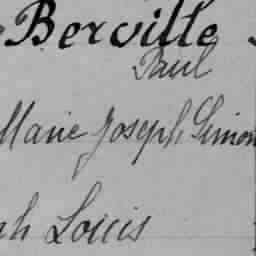 Berville
Paul
Marie Joseph Simon
Louis